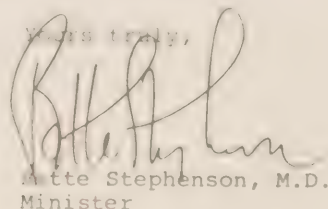 Yours truly,
Bette Stephenson
ette Stephenson, M.D.
Minister